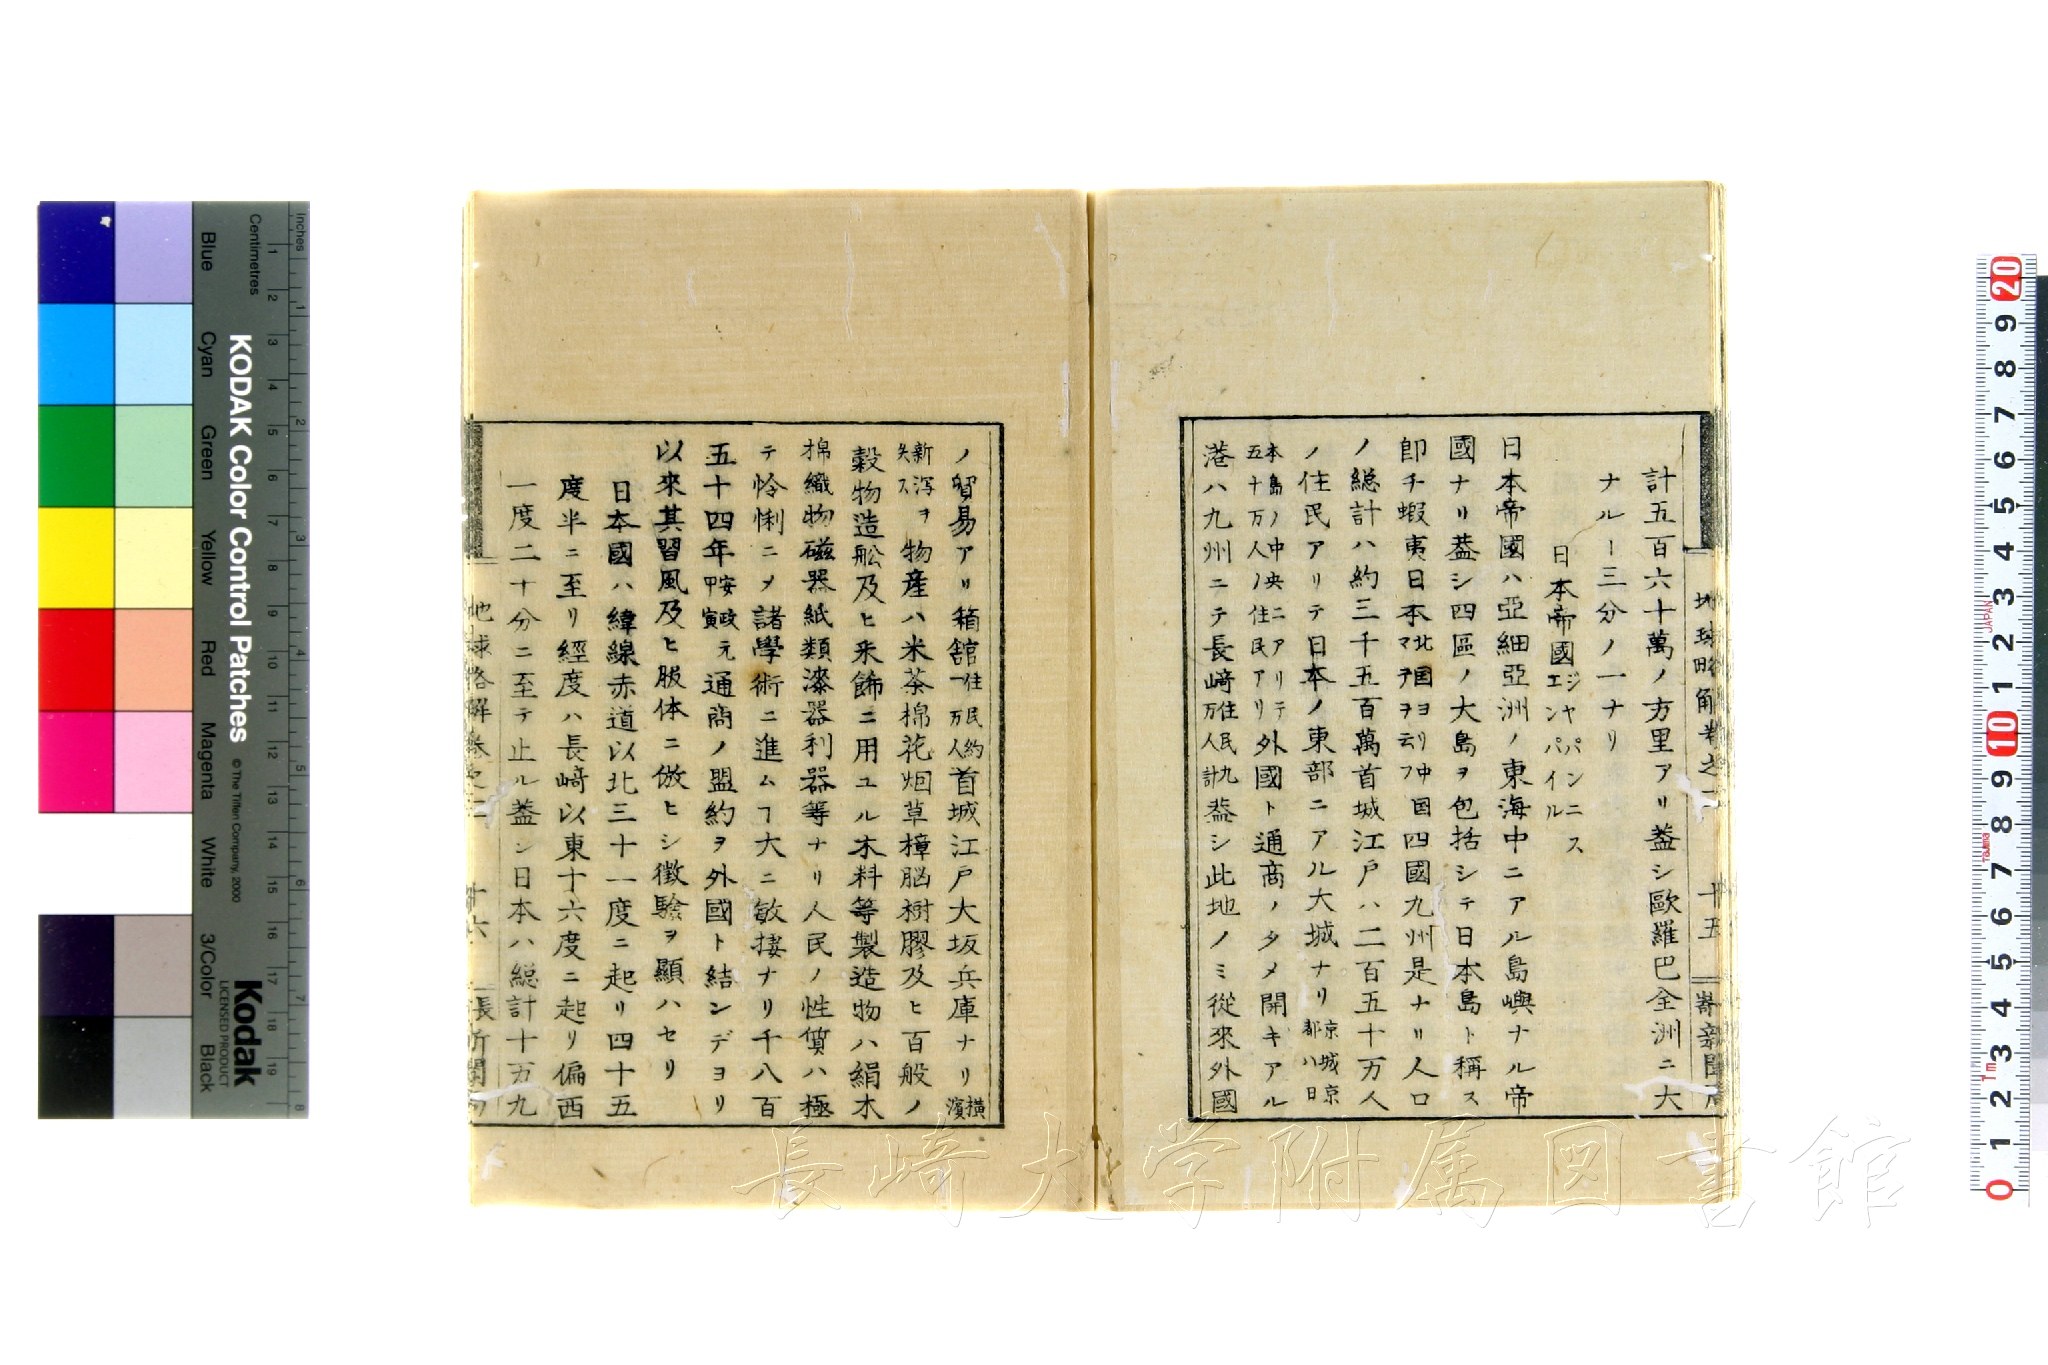 計五百六十萬ノ方里アリ葢シ歐羅巴全洲ニ大
ナルー三分ノ一ナリ
日本帝國ジヤパンニスエンパイル
日本帝國ハ亞細亞洲ノ東海中ニアル島嶼ナル帝
國ナリ葢シ四區ノ大島ヲ包括シテ日本島ト稱ス
卽チ蝦夷日本北国ヨリ中国マテヲ云フ四國九州是ナリ人口
ノ総計ハ約三千五百萬首城江戸ハ二百五十万人
ノ住民アリテ日本ノ東部ニアル大城ナリ京城京都ハ日
本島ノ中央ニアリテ五十万人ノ住民アリ外國ト通商ノタメ開キアル
港ハ九州ニテ長﨑住民九万人計葢シ此地ノミ從來外國
地球略解卷之二
十五
﨑新聞局
ノ貿易アリ箱舘住民約一万人首城江戸大坂兵庫ナリ横濱
新泻ヲ失ス物産ハ米茶棉花烟草樟脳樹膠及ヒ百般ノ
穀物造舩及ヒ釆飾ニ用ユル木料等製造物ハ絹木
棉織物磁器紙類漆器利器等ナリ人民ノ性質ハ極
テ怜悧ニメ諸學術ニ進ムヿ大ニ敏捷ナリ千八百
五十四年安政元甲寅通商ノ盟約ヲ外國ト結ンデヨリ
以來其習風及ヒ服体ニ倣ヒシ徴驗ヲ顯ハセリ
日本國ハ緯線赤道以北三十一度ニ起リ四十五
度半ニ至リ經度ハ長﨑以東十六度ニ起リ偏西
一度二十分ニ至テ止ル葢シ日本ハ総計十万九
地球略解卷之二
十六
長﨑新聞局
Inches
Centimetres
Blue
Cyan
Green
Yellow
Red
Magenta
White
3/Color
Black
KODAK Color Control Patches
© The Tiffen Company, 2000
Kodak
LICENSED PRODUCT
JAPAN
Tajima
長崎大学附属図書館